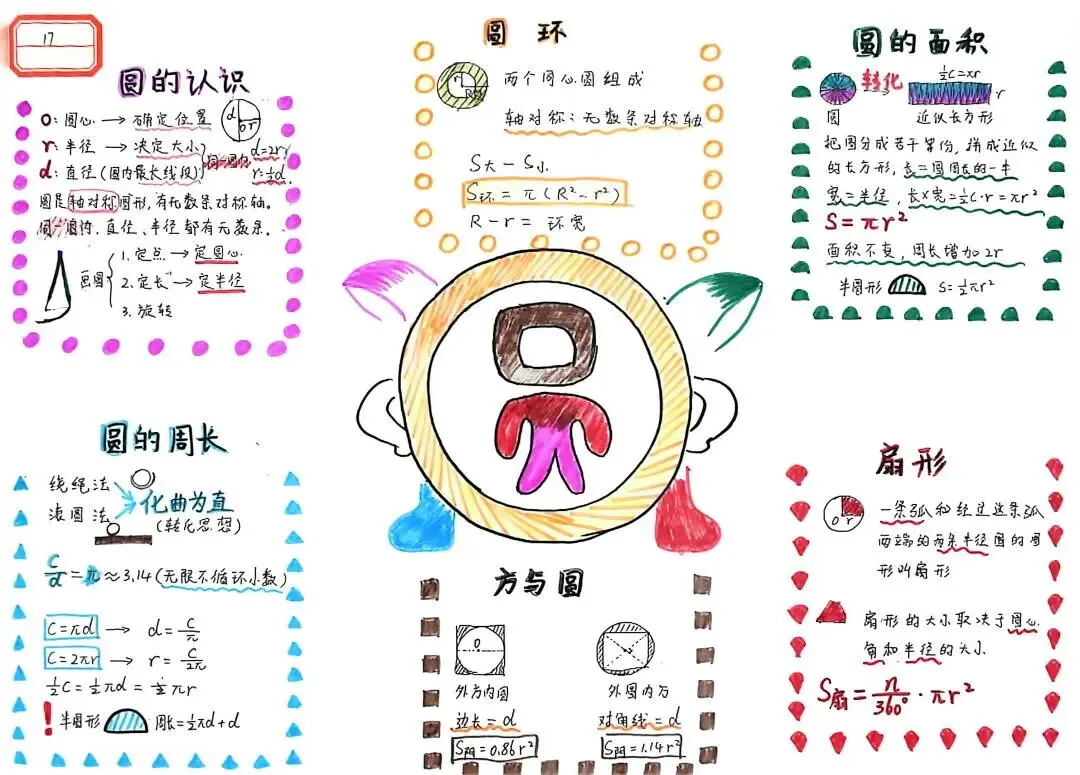 17
圆的认识
O: 圆心 → 确定位置
r: 半径 → 决定大小
d: 直径 (圆内最长线段)
同一圆内 d=2r
r=½d
d
O r
圆是轴对称图形,有无数条对称轴。
同一圆内,直径、半径都有无数条。
画圆
1. 定点 → 定圆心
2. 定长 → 定半径
3. 旋转
圆环
r
R
两个同心圆组成
轴对称:无数条对称轴
S大-S小
S环=π(R²-r²)
R-r=环宽
圆的面积
转化
½C=πr
r
圆
近似长方形
把圆分成若干等份,拼成近似
的长方形,长=圆周长的一半
宽=半径,长×宽=½C·r=πr²
S=πr²
面积不变,周长增加2r
半圆形 S=½πr²
圆的周长
绕绳法
滚圆法
化曲为直
(转化思想)
C/d=π≈3.14(无限不循环小数)
C=πd → d=C/π
C=2πr → r=C/2π
½C=½πd=½πr
! 半圆形 周长=½πd+d
方与圆
O
外方内圆
边长=d
S阴=0.86r²
外圆内方
对角线=d
S阴=1.14r²
扇形
O r
一条弧和经过这条弧
两端的两条半径围的图
形叫扇形
扇形的大小取决于圆心
角和半径的大小
S扇=n/360°·πr²